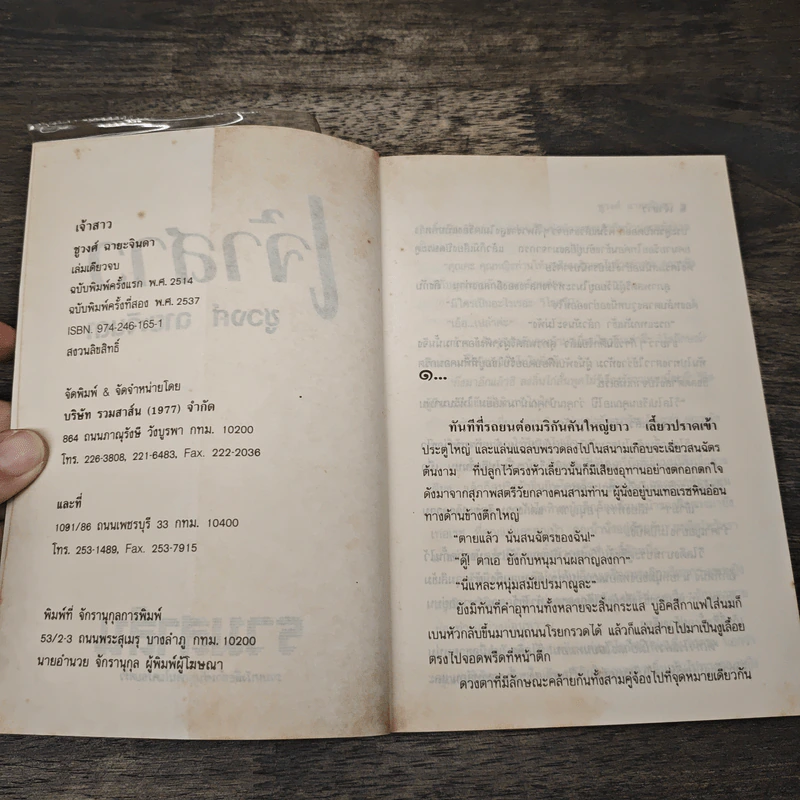 เจ้าสาว
ชูวงศ์ ฉายะจินดา
เล่มเดียวจบ
ฉบับพิมพ์ครั้งแรก พ.ศ. 2514
ฉบับพิมพ์ครั้งที่สอง พ.ศ. 2537
ISBN. 974-246-165-1
สงวนลิขสิทธิ์
จัดพิมพ์ & จัดจำหน่ายโดย
บริษัท รวมสาส์น (1977) จำกัด
864 ถนนภาณุรังษี วังบูรพา กทม. 10200
โทร. 226-3808, 221-6483, Fax. 222-2036
และที่
1091/86 ถนนเพชรบุรี 33 กทม. 10400
โทร. 253-1489, Fax. 253-7915
พิมพ์ที่ จักรานุกูลการพิมพ์
53/2-3 ถนนพระสุเมรุ บางลำภู กทม. 10200
นายอำนวย จักรานุกูล ผู้พิมพ์ผู้โฆษณา
๑...
ทันทีที่รถยนต์อเมริกันคันใหญ่ยาว เลี้ยวปราดเข้า
ประตูใหญ่ และแล่นแฉลบพรวดลงไปในสนามเกือบจะเฉี่ยวสนฉัตร
ต้นงาม ที่ปลูกไว้ตรงหัวเลี้ยวนั้นก็มีเสียงอุทานอย่างตกอกตกใจ
ดังมาจากสุภาพสตรีวัยกลางคนสามท่าน ผู้นั่งอยู่บนเทอเรซหินอ่อน
ทางด้านข้างตึกใหญ่
“ตายแล้ว นั่นสนฉัตรของฉัน!”
“ดู๊! ตาเอ ยังกับหนุมานผลาญลงกา”
“นี่แหละหนุ่มสมัยปรมาณูละ”
ยังมิทันที่คำอุทานทั้งหลายจะสิ้นกระแส บูอิคสีกาแฟใส่นมก็
เบนหัวกลับขึ้นมาบนถนนโรยกรวดได้ แล้วก็แล่นส่ายไปมาเป็นงูเลื้อย
ตรงไปจอดพรืดที่หน้าตึก
ดวงตาที่มีลักษณะคล้ายกันทั้งสามคู่จ้องไปที่จุดหมายเดียวกัน